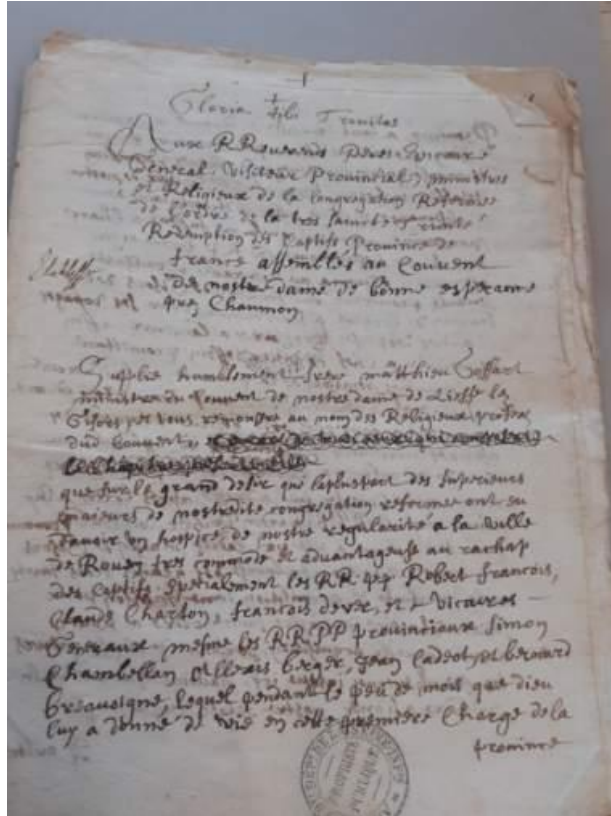 Gloria tibi Trinitas
Aux RReverends Peres Vicaire
General Visiteur Provincial, ministres
et Religieux de la congregation Reformée
de l'ordre de la tres saincte Trinité
Redemption des Captifs Province de
france assemblés au Couvent
de nostre dame de bonne esperance
pres Chaumon
Supplie humblement frere matthieu Goffart
ministre du Couvent de nostre dame de Liesse lez
Gisors pour vous remonstre au nom des Religieux profex
dud Couvent,
que sur le grand desir que la pluspart des superieurs
maieurs de nostredite congregation reformee ont eu
davoir un hospice de nostre regularité a la ville
de Rouen tres commode et advantageuse au rachap
des Captifs specialement les RR pp Robert francois,
Claude Charton, francois dever, et Vicaires
Generaux mesme les RRPP provinciaux simon
Chambellan berger, Jean Cadeot, et bernard
lequel pendant le peu de mois que dieu
luy a donné de vie en cette premiere Charge de la
province